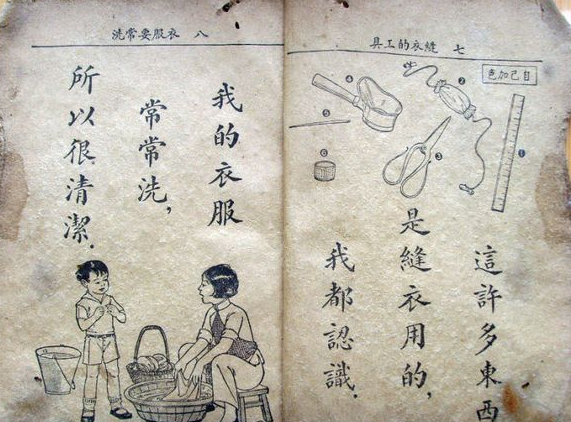 七 縫衣的工具
自己加色
①
②
③
④
⑤
⑥
這許多東西
是縫衣用的，
我都認識．
八 衣服要常洗
我的衣服
常常洗，
所以很清潔．